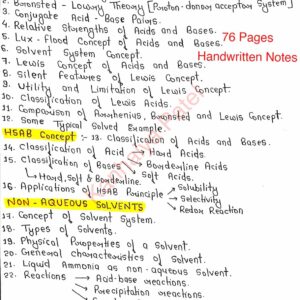 2. Bronsted - Lowry Theory [Proton-donor acceptor System]
3. Conjugate Acid - Base Pairs.
4. Relative Strengths of Acids and Bases.
5. Lux - Flood Concept of Acids and Bases.
6. Solvent System Concept.
7. Lewis Concept of Acids and Bases.
8. Silent Features of Lewis Concept.
9. Utility and Limitation of Lewis Concept.
10. Classification of Lewis Acids.
11. Comparison of Arrhenius, Bronsted and Lewis Concept.
12. Some Typical Solved Example.
HSAB Concept :- 13. Classification of Acids and Bases.
14. Classification of Acid Hard Acids.
Borderline Acids
15. Classification of Bases Soft Acids.
Hard, Soft & Borderline.
16. Applications of HSAB Principle Solubility
Selectivity
Redox Reaction
NON - AQUEOUS SOLVENTS
17. Concept of Solvent System.
18. Types of Solvents.
19. Physical Properties of a Solvent.
20. General characteristics of Solvent.
21. Liquid Ammonia as non-aqueous solvent.
22. Reactions Acid-base reactions.
Precipitation reactions.
76 Pages
Handwritten Notes